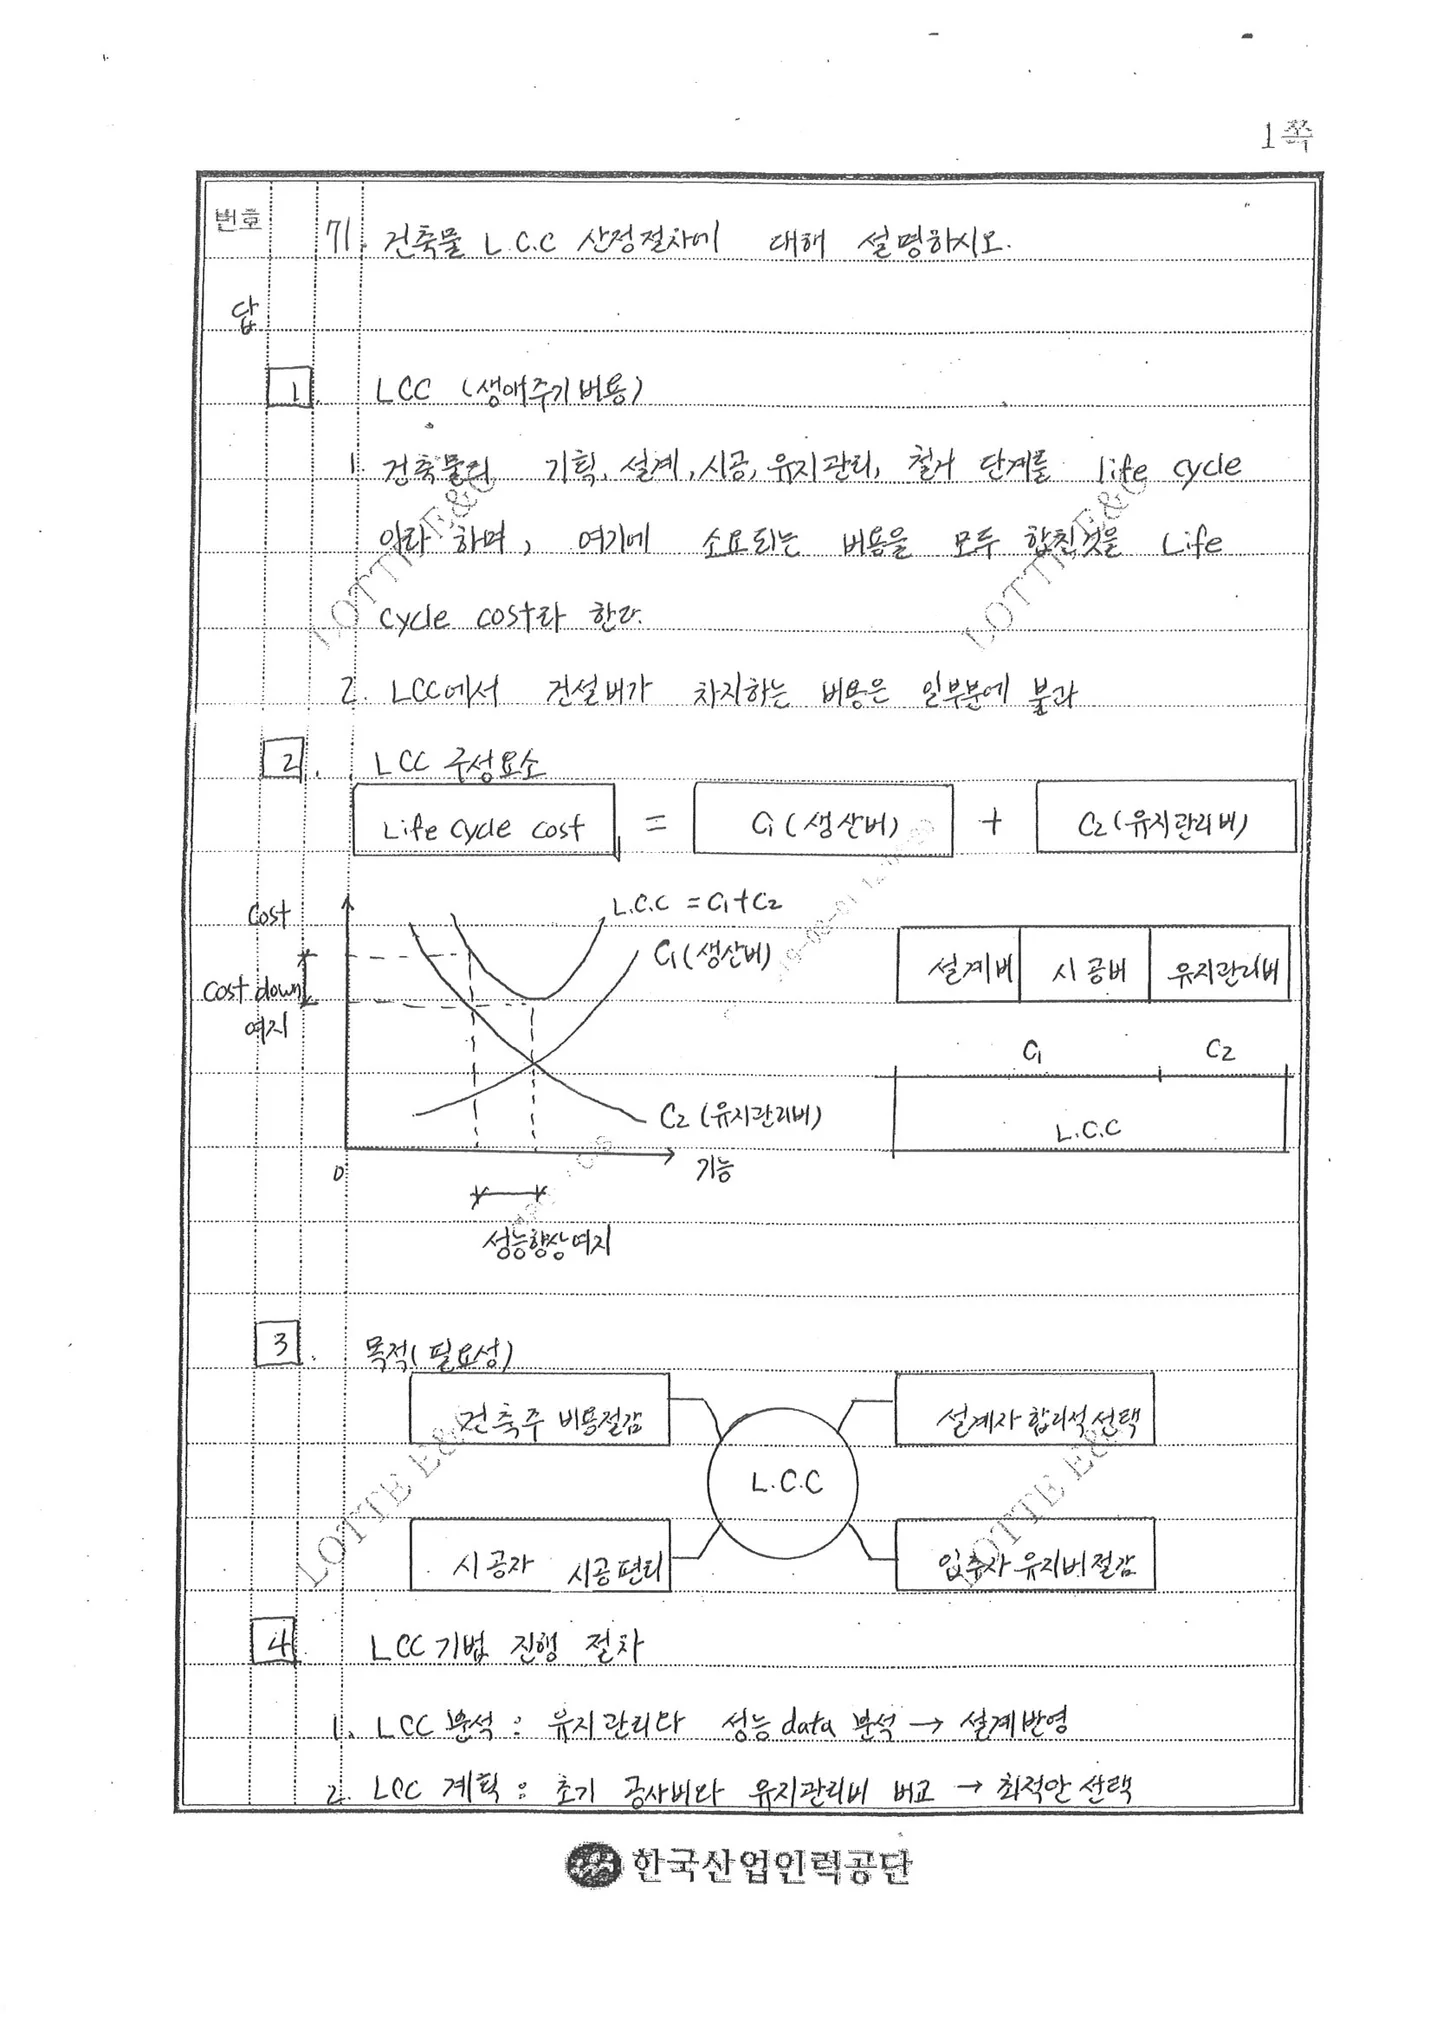 1쪽
번호 71. 건축물 L.C.C 산정절차에 대해 설명하시오.
답
1. LCC (생애주기비용)
1. 건축물의 기획, 설계, 시공, 유지관리, 철거 단계를 life cycle
이라 하며, 여기에 소요되는 비용을 모두 합친것을 Life
cycle cost라 한다.
2. LCC에서 건설비가 차지하는 비용은 일부분에 불과
2. LCC 구성요소
Life cycle cost = C1 (생산비) + C2 (유지관리비)
Cost
L.C.C = C1+C2
C1 (생산비)
Cost down
여지
C2 (유지관리비)
0
기능
성능향상여지
설계비 시공비 유지관리비
C1 C2
L.C.C
3. 목적(필요성)
건축주 비용절감 설계자 합리적 선택
L.C.C
시공자 시공편리 입주자 유지비절감
4. LCC 기법 진행 절차
1. LCC 분석 : 유지관리와 성능 data 분석 → 설계반영
2. LCC 계획 : 초기 공사비와 유지관리비 비교 → 최적안 선택
한국산업인력공단
LOTTE E&C
LOTTE E&C
LOTTE E&C
LOTTE E&C